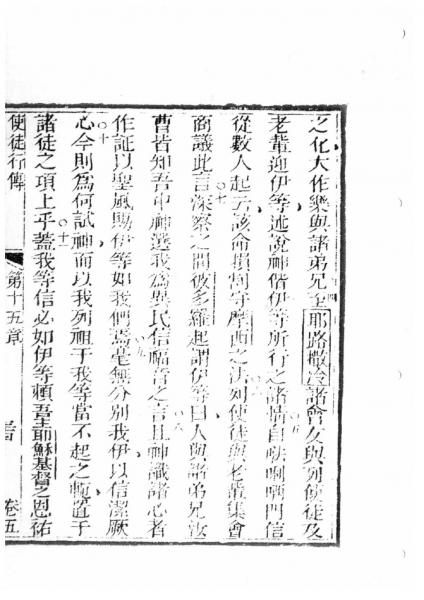 之化大作樂與諸弟兄至耶路撒冷諸會友與列使徒及
老輩迎伊等述說神偕伊等所行之諸情自𠵽唎㘔門信
從數人起云該命損割守摩西之法列使徒與老輩集會
商議此言深察之間彼多羅起謂伊等曰人與諸弟兄汝
曹皆知吾中神選我為異民信福音之言且神識諸心者
作証以聖風賜伊等如我們焉毫無分別我伊以信潔厥
心今則為何試神而以我列祖于我等當不起之軛置于
諸徒之項上乎蓋我等信必如伊等賴吾主耶穌基督之恩祐
使徒行傳 第十五章 卷五